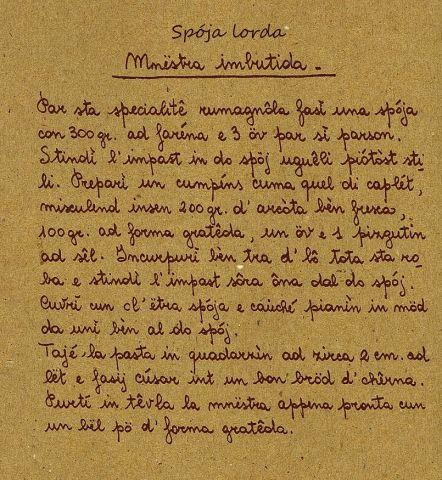 Spója lorda
Mnëstra imbutida.
Par sta specialitê rumagnôla fasì una spója
con 300 gr. ad faréna e 3 öv par sì parson.
Stindì l'impast in do spöj uguêli piótòst sti-
li. Preparì un cumpíns cuma quel di caplét,
misculend insen 200 gr. d'arcòta bèn fresca,
100 gr. ad forma gratêda, un öv e 1 pizgutìn
ad sêl. Incurpurì bèn tra d'lô tota sta ro-
ba e stindì l'impast sôra ôna dal do spój.
Cuvrì cun cl'ëtra spója e caiché pianìn in möd
da unì bèn al do spój.
Tajé la pasta in quadarìn ad zirca 2 cm. ad
lêt e fasij cúsar int un bon bröd d'chêrna.
Purtì in têvla la mnëstra appena pronta cun
un bël pö d'forma gratêda.